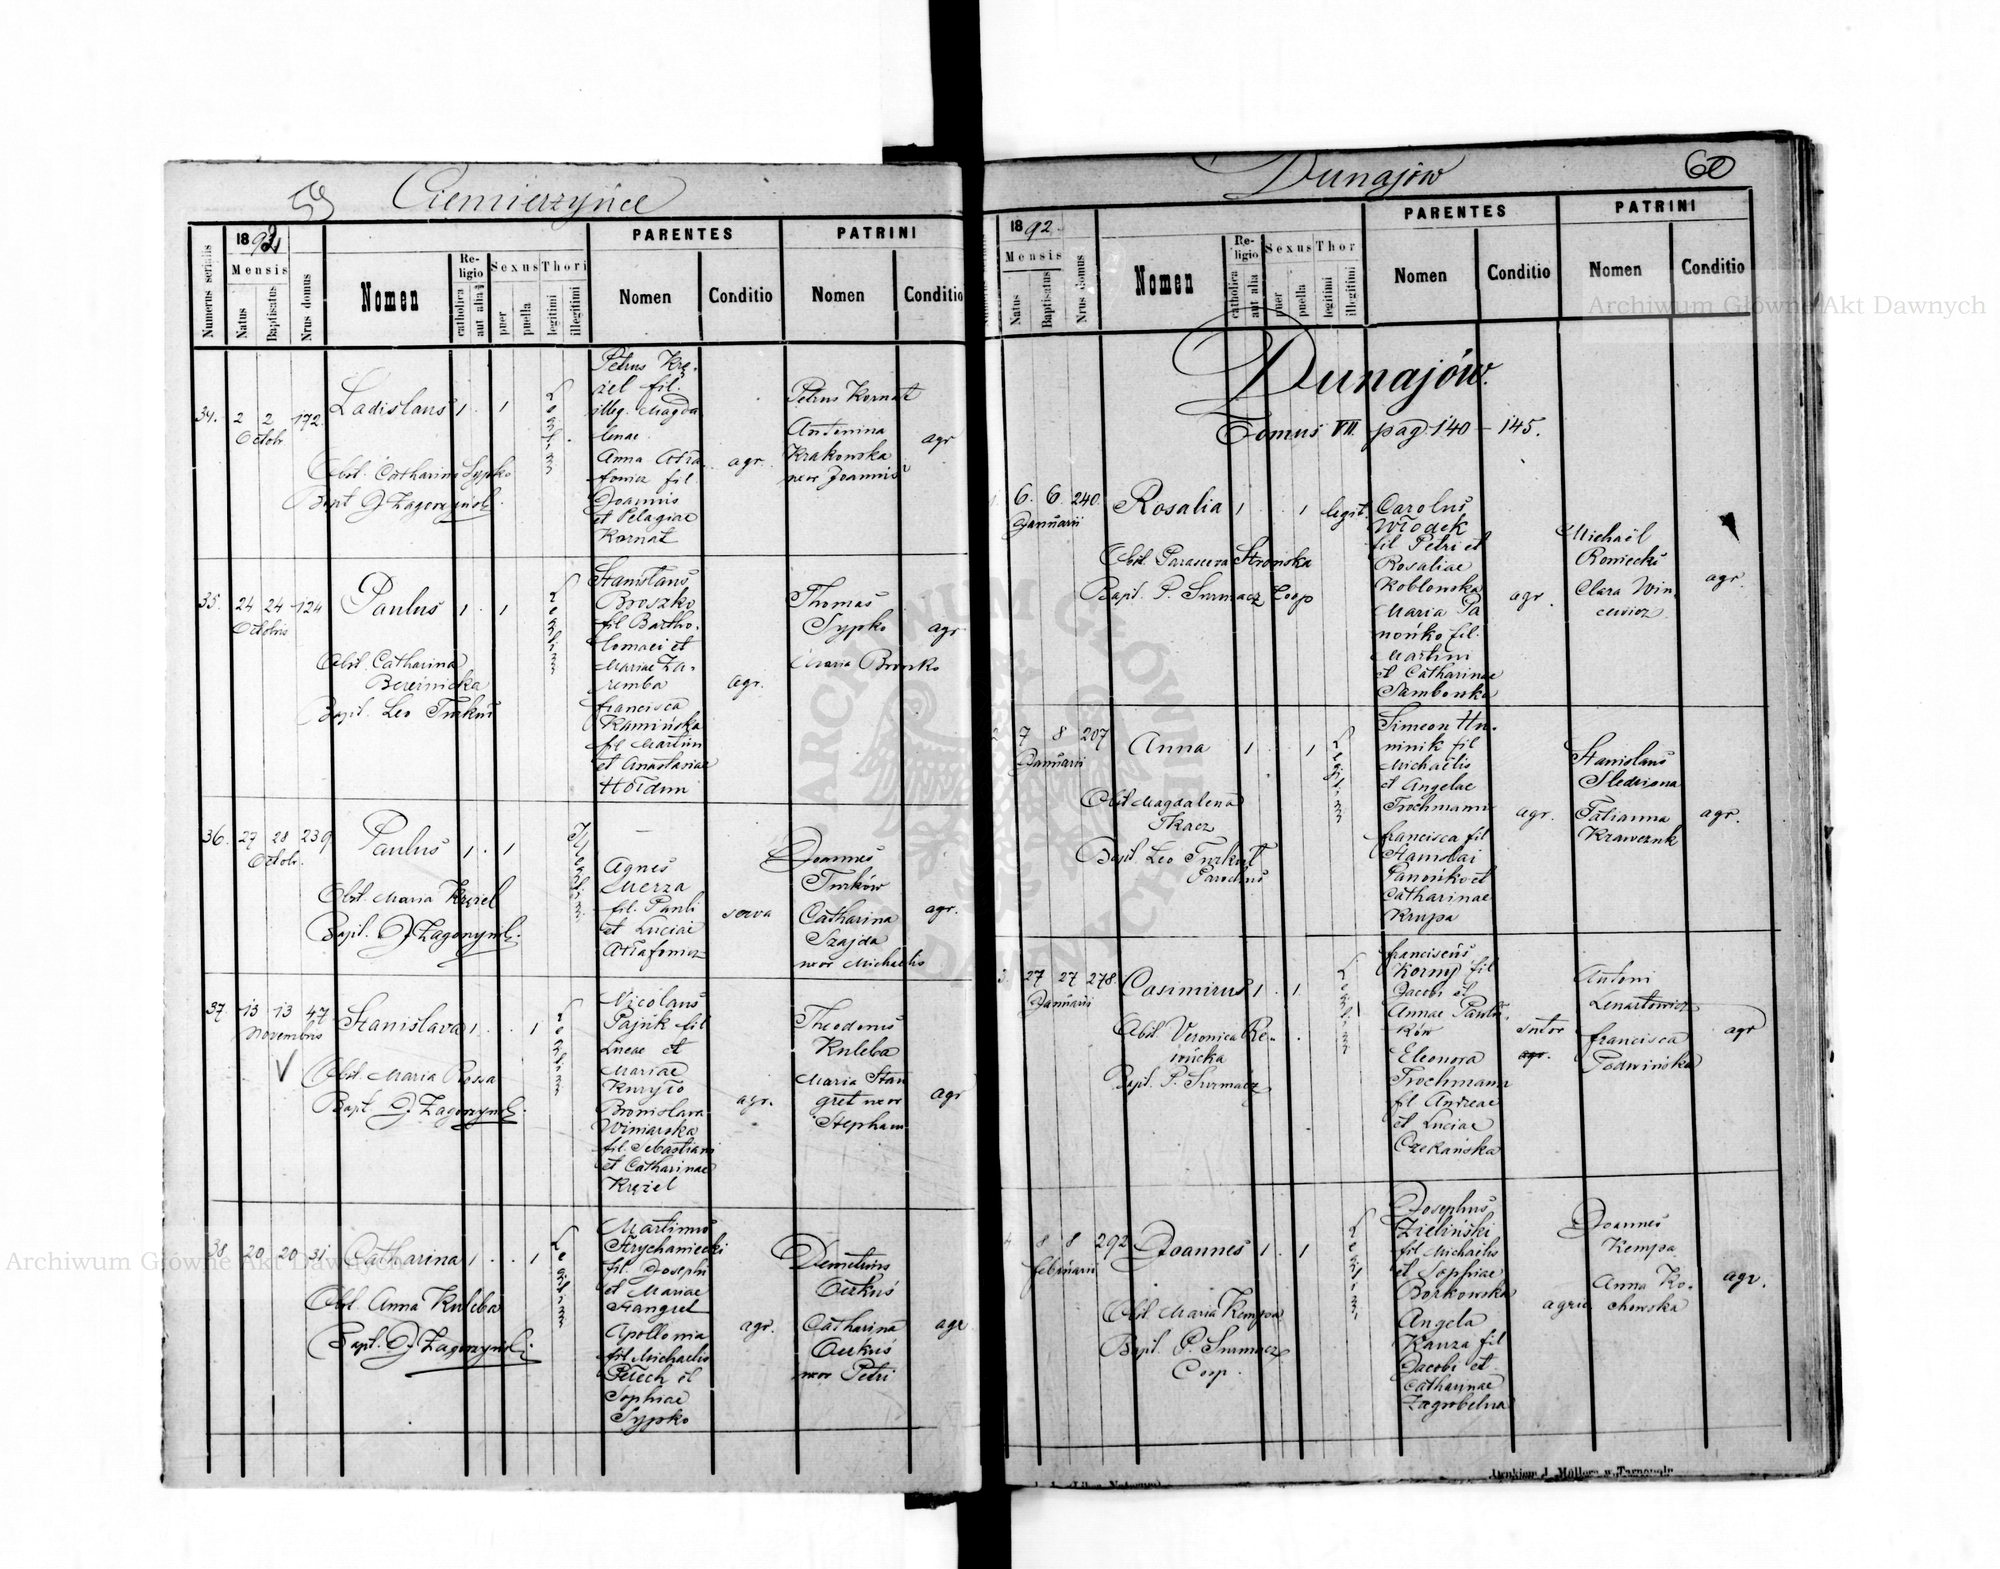 59 Ciemierzyńce
Numerus serialis
1892
Mensis
Natus
Baptisatus
Nrus domus
Nomen
Religio
catholica
aut alia
Sexus
puer
puella
Thori
legitimi
illegitimi
PARENTES
Nomen
Conditio
PATRINI
Nomen
Conditio
34. 2 2 172
Octobr.
Ladislaus 1 . 1
Legitimi
Obst. Catharina Sypko
Bapt. J. Zagorzyński
Petrus Krę-
ziel fil.
illeg. Magda
lenae
Anna
fil
Joannis
et Pelagiae
Kornat
agr.
Petrus Kornat
Antonina
Krakowska
uxor Joannis
agr
35. 24 24 124
Octobris
Paulus 1 . 1
Obst. Catharina
Bereźnicka
Bapt. Leo Turkuł
Stanislaus
Broszko
fil Bartho-
lomaei et
Mariae Za-
remba
Francisca
Kamińska
fil Martini
et Anastasiae
Hołdun
agr.
Thomas
Sypko
Maria Broszko
agr.
36. 27 28 239
Octobr.
Paulus 1 . 1
Obst. Maria Kręziel
Bapt. J. Zagorzyński
Agnes
fil. Pauli
et Luciae
serva
Joannes
Turków
Catharina
Szajda
uxor Michaelis
agr.
37. 13 13 47
Novembris
V
Stanislava 1 . . 1
Obst. Maria Rossa
Bapt. J. Zagorzyński
Nicolaus
Pajuk fil
Lucae et
Mariae
Kuryło
Bronislava
Winiarska
fil. Sebastiani
et Catharinae
Kręziel
agr.
Theodorus
Kuleba
Maria Stan
gret uxor
Stephani
agr
38. 20 20 31.
Catharina 1 . . 1
Obst. Anna Kuleba
Bapt. J. Zagorzyński
Martinus
Strychaniecki
fil. Josephi
et Mariae
Stangret
Apollonia
fil Michaelis
Petech et
Sophiae
Sypko
agr.
Demetrius
Catharina
uxor Petri
agr
Dunajów 60
1892.
Mensis
Natus
Baptisatus
Nrus domus
Nomen
Religio
catholica
aut alia
Sexus
puer
puella
Thor
legitimi
illegitimi
PARENTES
Nomen
Conditio
PATRINI
Nomen
Conditio
Dunajów.
Tomus VII. pag. 140 – 145.
1 6. 6. 240.
Januarii
Rosalia 1 . . 1 legit.
Obst. Parasceva Strońska
Bapt. P. Surmacz Coop
Carolus
Włodek
fil Petri et
Rosaliae
Koblowska
Maria Pa
nońko fil.
Martini
et Catharinae
Samborska
agr.
Michaël
Roniecki
Clara Win-
cewicz
agr.
2 7 8 207
Januarii
Anna 1 . . 1
Obst. Magdalena
Tkacz
Bapt. Leo Turkuł
Parochus
Simeon Hu-
minik fil
Michaëlis
et Angelae
Trochmann
Francisca fil
Stanislai
Panońko et
Catharinae
Krupa
agr.
Stanislaus
Śledziona
Tatianna
Krawczuk
agr.
3. 27 27 278.
Januarii
Casimirus 1 . 1
Obst. Veronica
Bapt. P. Surmacz
Franciscus
Korny fil
Jacobi et
Annae Pawli-
ków
Eleonora
Trochmann
fil. Andreae
et Luciae
Czekańska
sutor
agr.
Antoni
Lenartowicz
Francisca
Podwińska
agr
4 8 8 292
Februarii
Joannes 1 . 1
Obst. Maria Kempa
Bapt. P. Surmacz
Coop.
Josephus
Zieliński
fil Michaëlis
et Sophiae
Borkowska
Angela
Kanza fil
Jacobi et
Catharinae
Zagrobelna
agric.
Joannes
Kempa
Anna Ko-
chowska
agr.
Drukiem J. Müllera w Tarnopolu
Archiwum Główne Akt Dawnych
Archiwum Główne Akt Dawnych
ARCHIWUM GŁÓWNE AKT DAWNYCH